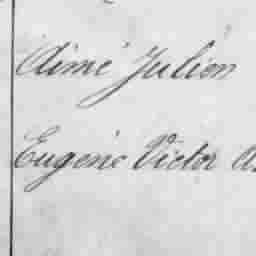 Aimé Julien
Eugène Victor